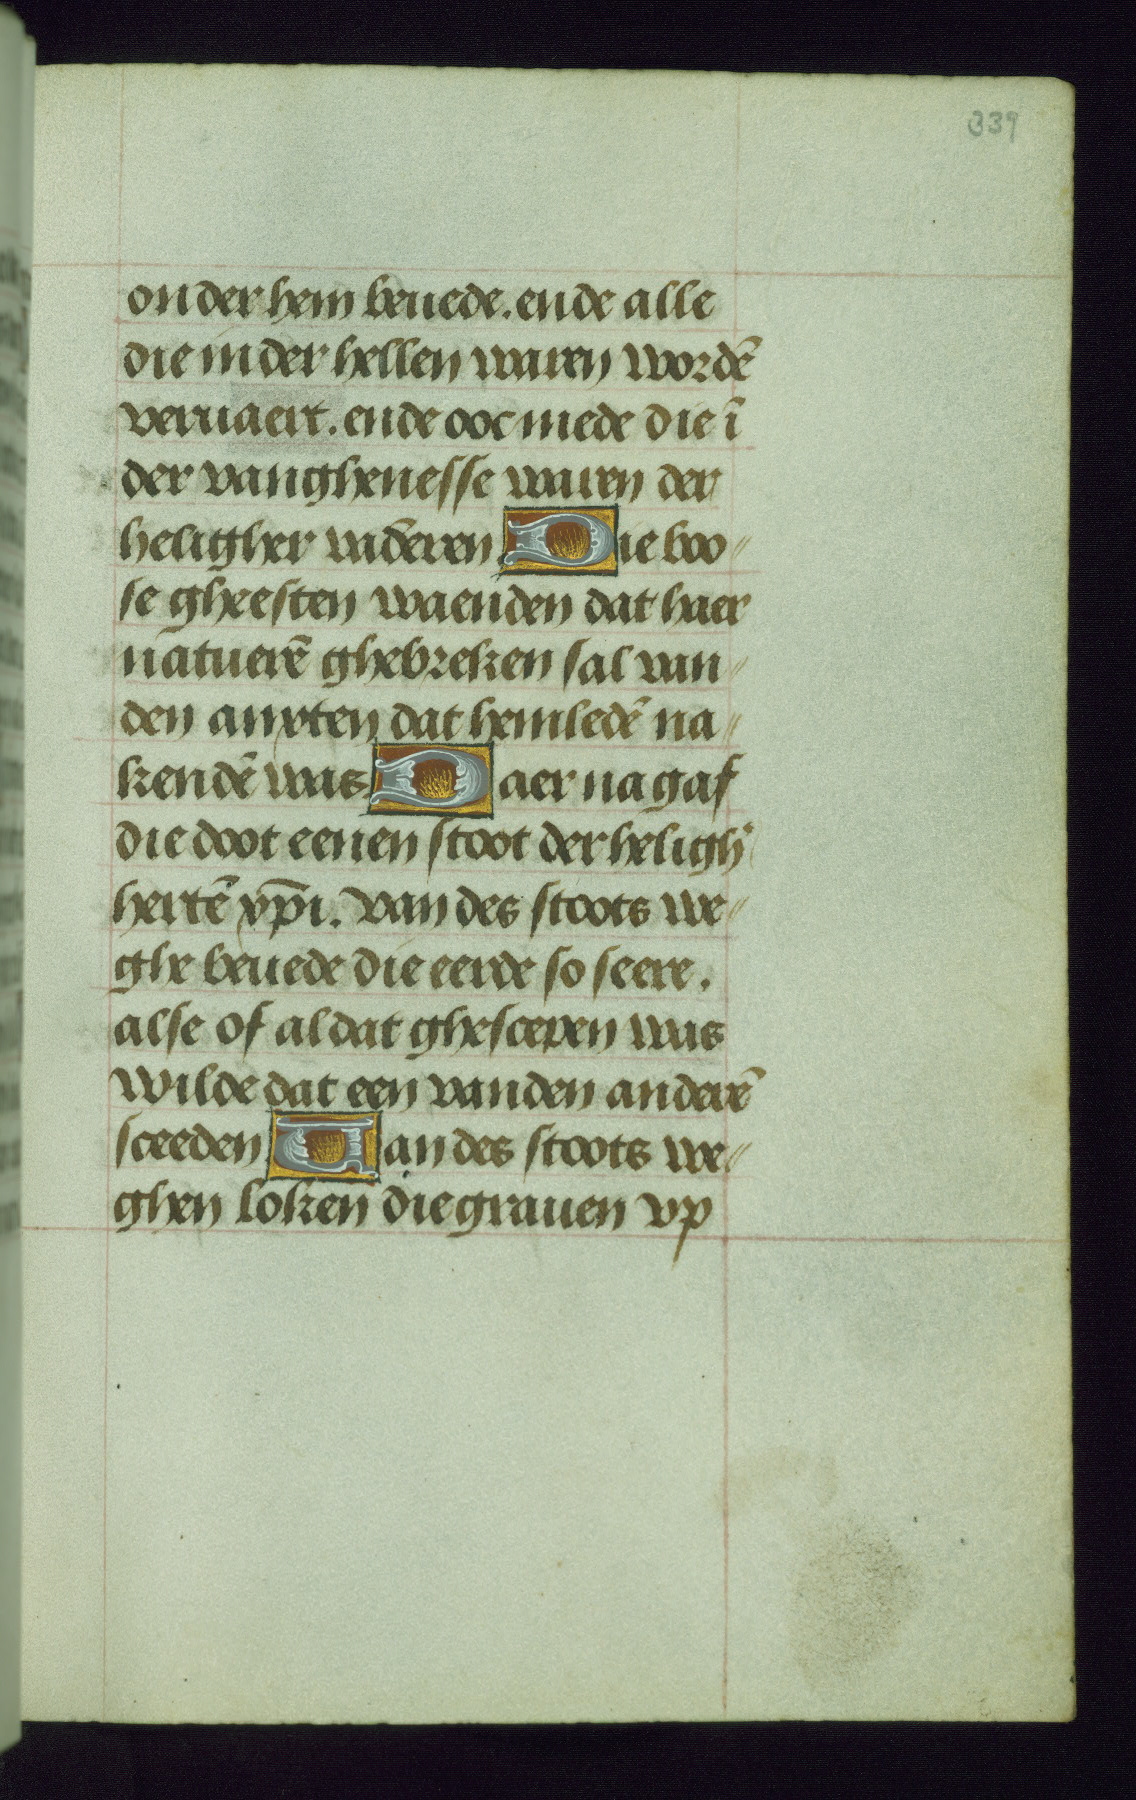 339
onder hem beuede. ende alle
die in der hellen waren wordē
veruaert. ende ooc mede die ī
der vanghenesse waren der
heligher vad̄eren Die boo〃
se gheesten waenden dat haer
natuerē ghebreken sal van〃
den anxten dat hemledē na〃
kendē was Daer na gaf
die doot eenen stoot der heligh'
hertē xp̄i. van des stoots we〃
ghe beuede die eerde so seere.
alse of al dat ghescepen was
wilde dat een vanden anderē
sceeden Van des stoots we〃
ghen loken die grauen vp